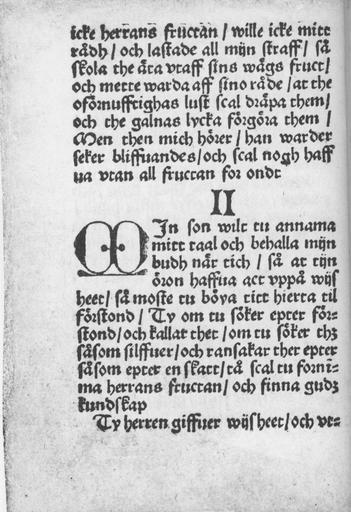 icke herrans fructan / wille icke mitt
rådh / och lastade all mijn straff / så
skola the äta vtaff sins wägs fruct /
och mette warda aff sino råde / at the
oförnufftighas lust scal dräpa them /
och the galnas lycka förgöra them /
Men then mich hörer / han warder
seker bliffuandes / och scal nogh haff
ua vtan all fructan for ondt
II
MJn son wilt tu annama
mitt taal och behalla mijn
budh när tich / så at tijn
öron haffua act vppå wijs
heet / så moste tu böya titt hierta til
förstond / Ty om tu söker epter för⸗
stond / och kallar thet / om tu söker thz
såsom silffuer / och ransakar ther epter
såsom epter en skatt / tå scal tu forni⸗
ma herrans fructan / och finna gudz
kundskap
Ty herren giffuer wijsheet / och vt⸗